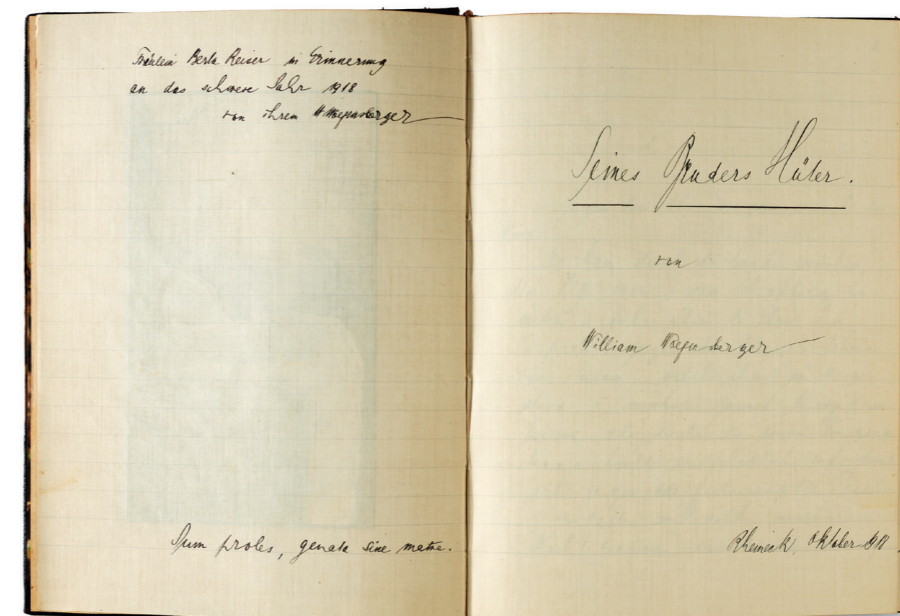 Fräulein Berta Reiser in Erinnerung
an das schwere Jahr 1918
von ihrem W. Wolfensberger
Spum proles, genata sine matre.
Seines Bruders Hüter.
von
William Wolfensberger
Rheineck, Oktober 1918